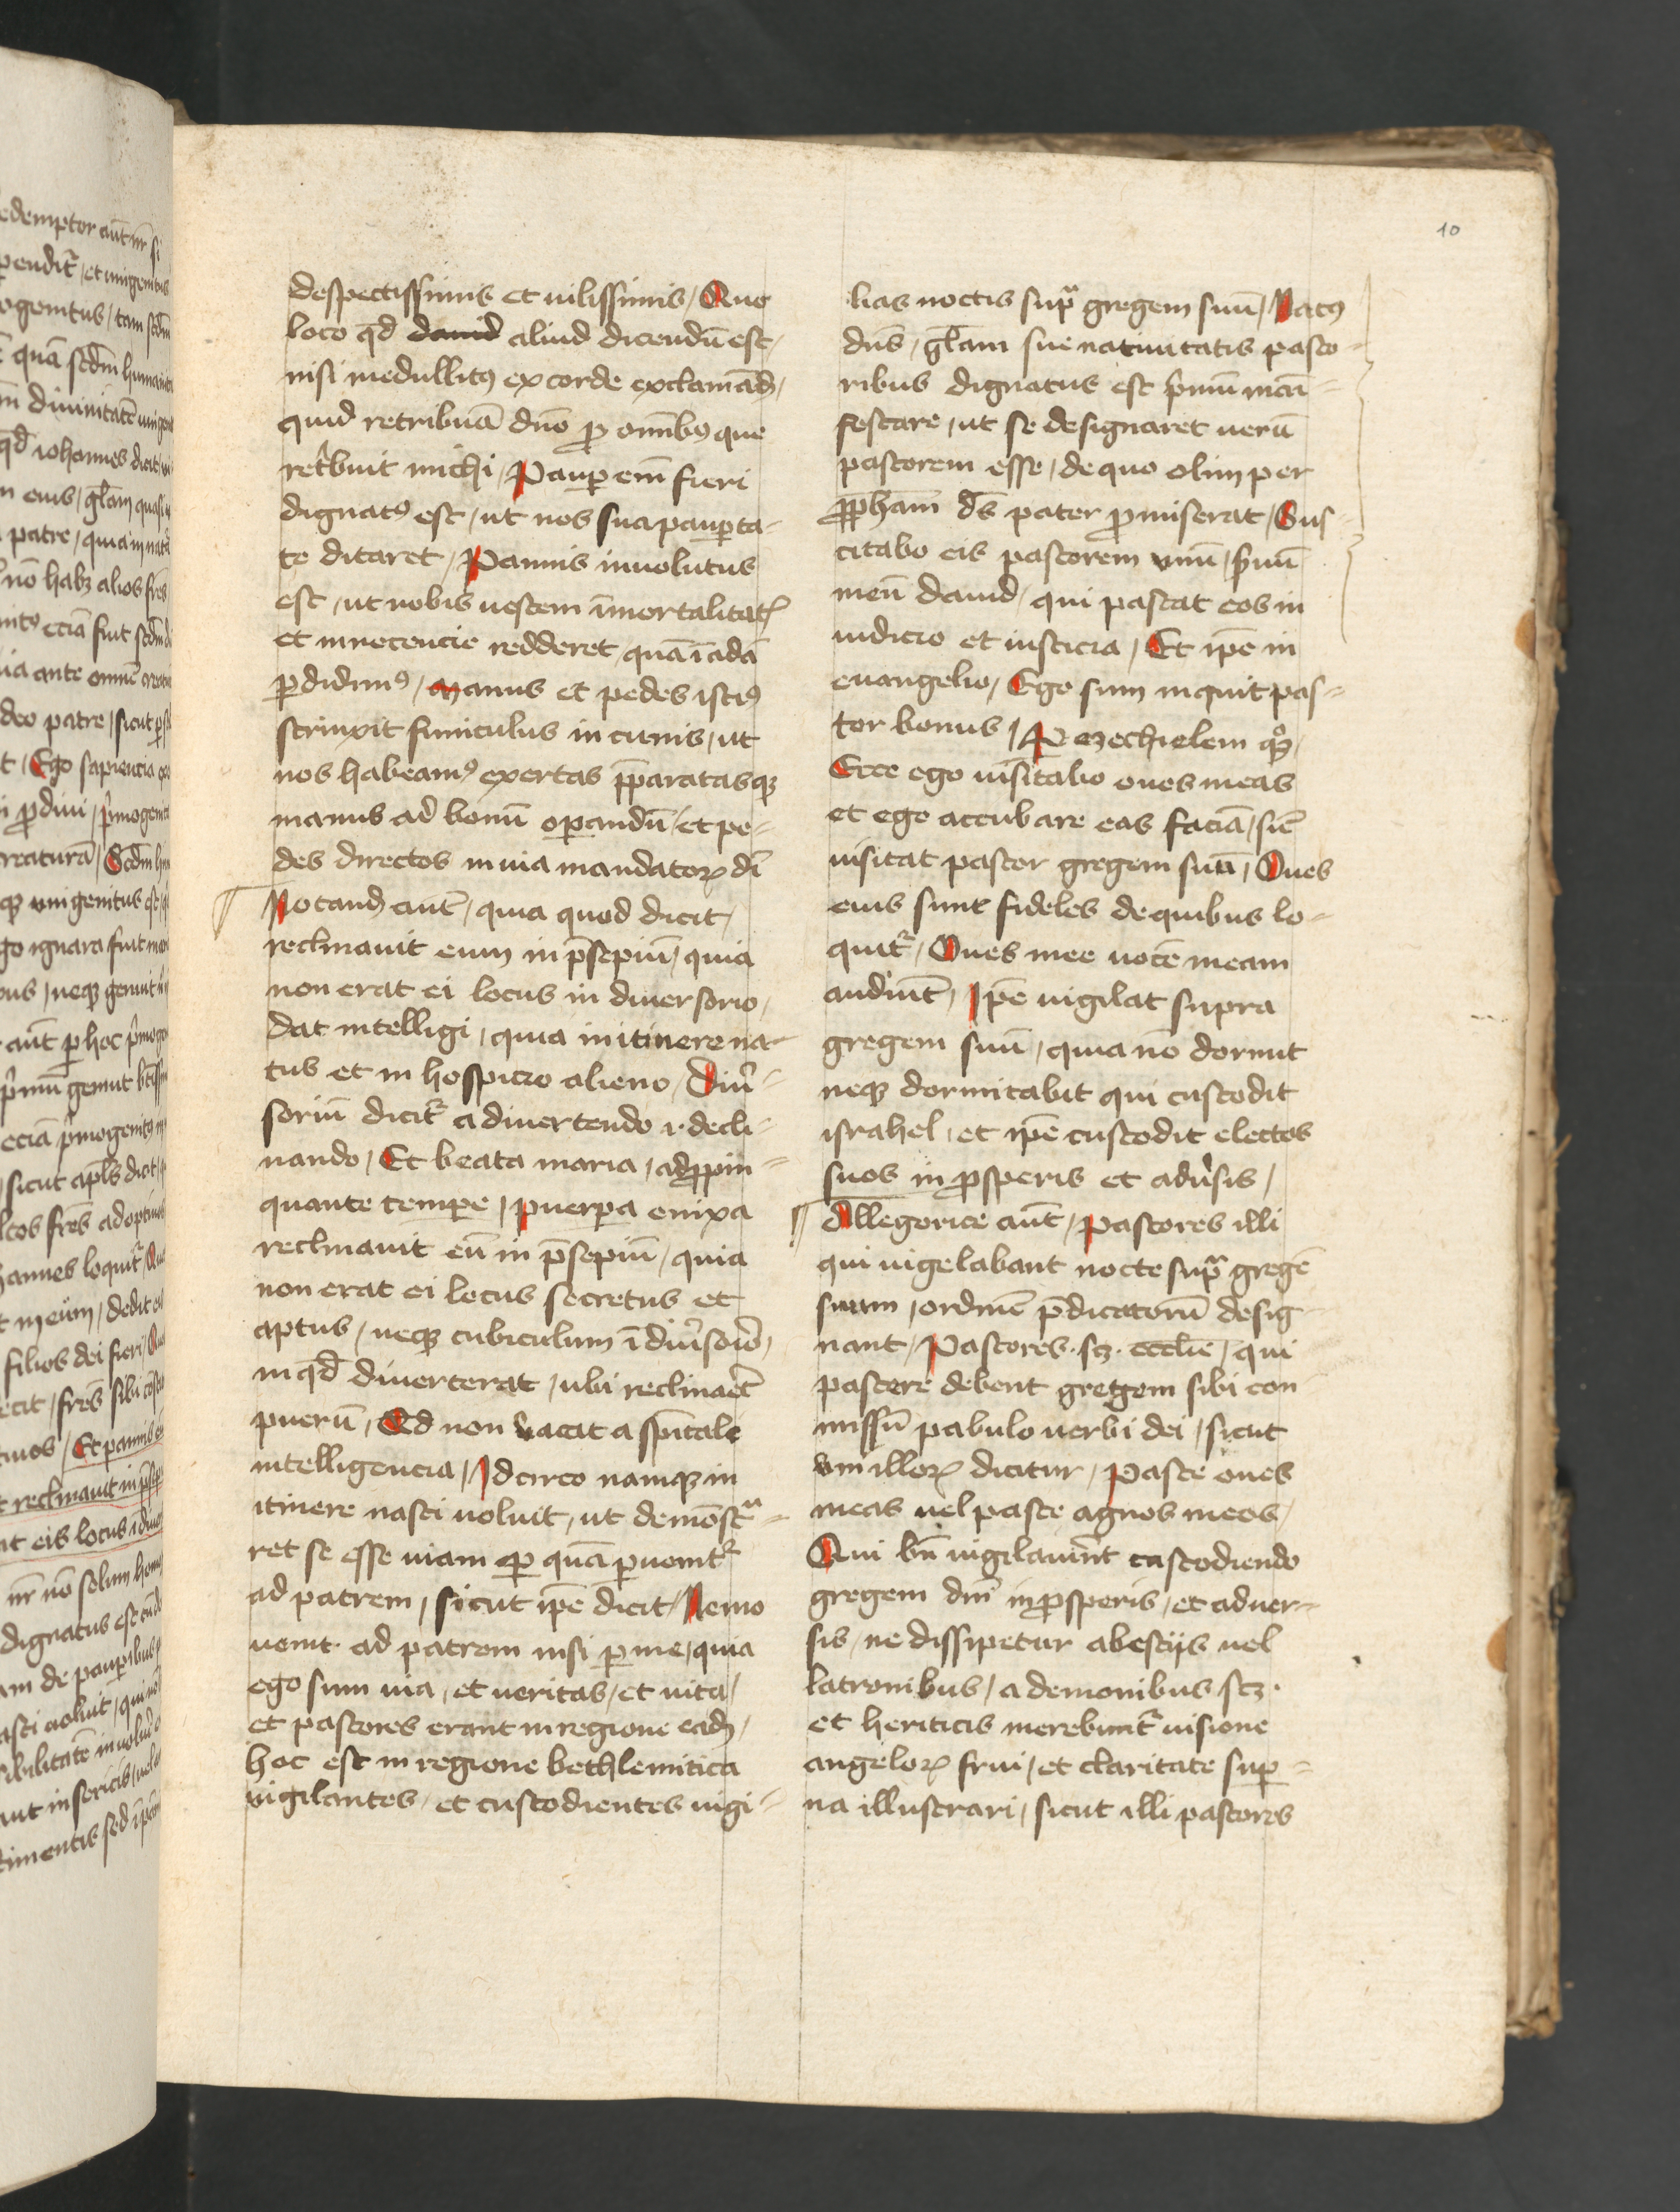 10
despectissimis et uilissimis / Quo
loco qd̄ dauid aliud dicendū est /
nisi medullitꝰ ex corde exclamād̄ /
quid retribuā dn̄o ꝓ om̄ibꝰ que
ret͛buit michi / Paup̲ em̄ fieri
dignatꝰ est / ut nos sua paup̲ta-
te ditaret / Pannis inuolutus
est / ut nobis uestem īmortalitatꝭ
et innocencie redderet / quā ī adā
p̲didimꝰ / manus et pedes istiꝰ
strinxit funiculus in cunis / ut
nos habeamꝰ exertas p̄paratasqꝫ
manus ad bonū op̲andū / et pe-
des directos in uia mandatorꝝ dī
Notand̄ aut̄ / quia quod dicit /
reclinauit eum in p̄sepiū / quia
non erat ei locus in diuersorio /
dat intelligi / quia in itinere na-
tus et in hospicio alieno / Diu͛-
soriū dicit᷑ a diuertendo .i. decli-
nando / Et beata maria / adꝓpin-
quante tempore / puerp̲a enixa
reclinauit eū in p̄sepiū / quia
non erat ei locus secretus et
aptus / neqꝫ cubiculum ī diu͛sorio /
in qd̄ diuerterat / ubi reclinaret
puerū / Ed non vacat a sp̄itale
intelligencia / Idcirco namqꝫ in
itinere nasci uoluit / ut demōstᵃ-
ret se esse uiam p̲ quā p̲uenit᷑
ad patrem / sicut ip̄e dicit / Nemo
uenit ad patrem nisi p̲ me / quia
ego sum uia / et ueritas / et uita /
et pastores erant in regione eadꝫ /
hoc est in regione bethlemitica
vigilantes / et custodientes uigi-
lias noctis supᵃ gregem suū / Natꝰ
dn̄s / gl̄am sue natiuitatis pasto-
ribus dignatus est p͛mū mani-
festare / ut se designaret uerū
pastorem esse / de quo olim per
ꝓpham̄ ds̄ pater ꝓmiserat / Sus-
citabo eis pastorem vnū / s͛uū
meū dauid / qui pascat eos in
iudicio et iusticia / Et ip̄e in
euangelio / Ego sum inquit pas-
tor bonus / P̲ ezechielem qꝫ /
Ecce ego uisitabo oues meas
et ego accubare eas faciā / sic̄
uisitat pastor gregem suū / Oues
eius sunt fideles de quibus lo-
quit᷑ / Oues mee uocē meam
audiūt / Ip̄e uigilat supra
gregem suū / quia nō dormit
neqꝫ dormitabit qui custodit
israhel / et ip̄e custodit electos
suos in ꝓsperis et adu͛sis /
Allegorice aūt / Pastores illi
qui uigelabant nocte supᵃ gregē
suum / ordinē p̄dicatorū desig-
nant / Pastores .scꝫ. eccl̄ie / qui
pascere debent gregem sibi con-
missū pabulo uerbi dei / sicut
vni illorꝝ dicitur / Pasce oues
meas uel pasce agnos meos /
Qui bn̄ uigilauerīt custodiendo
gregem dn̄i in ꝓsperis / et aduer-
sis / ne dissipetur a bestijs uel
latronibus / a demonibus scꝫ.
et heriticis merebunt᷑ uisione
angelorꝝ frui / et claritate sup̲-
na illustrari / sicut illi pastores